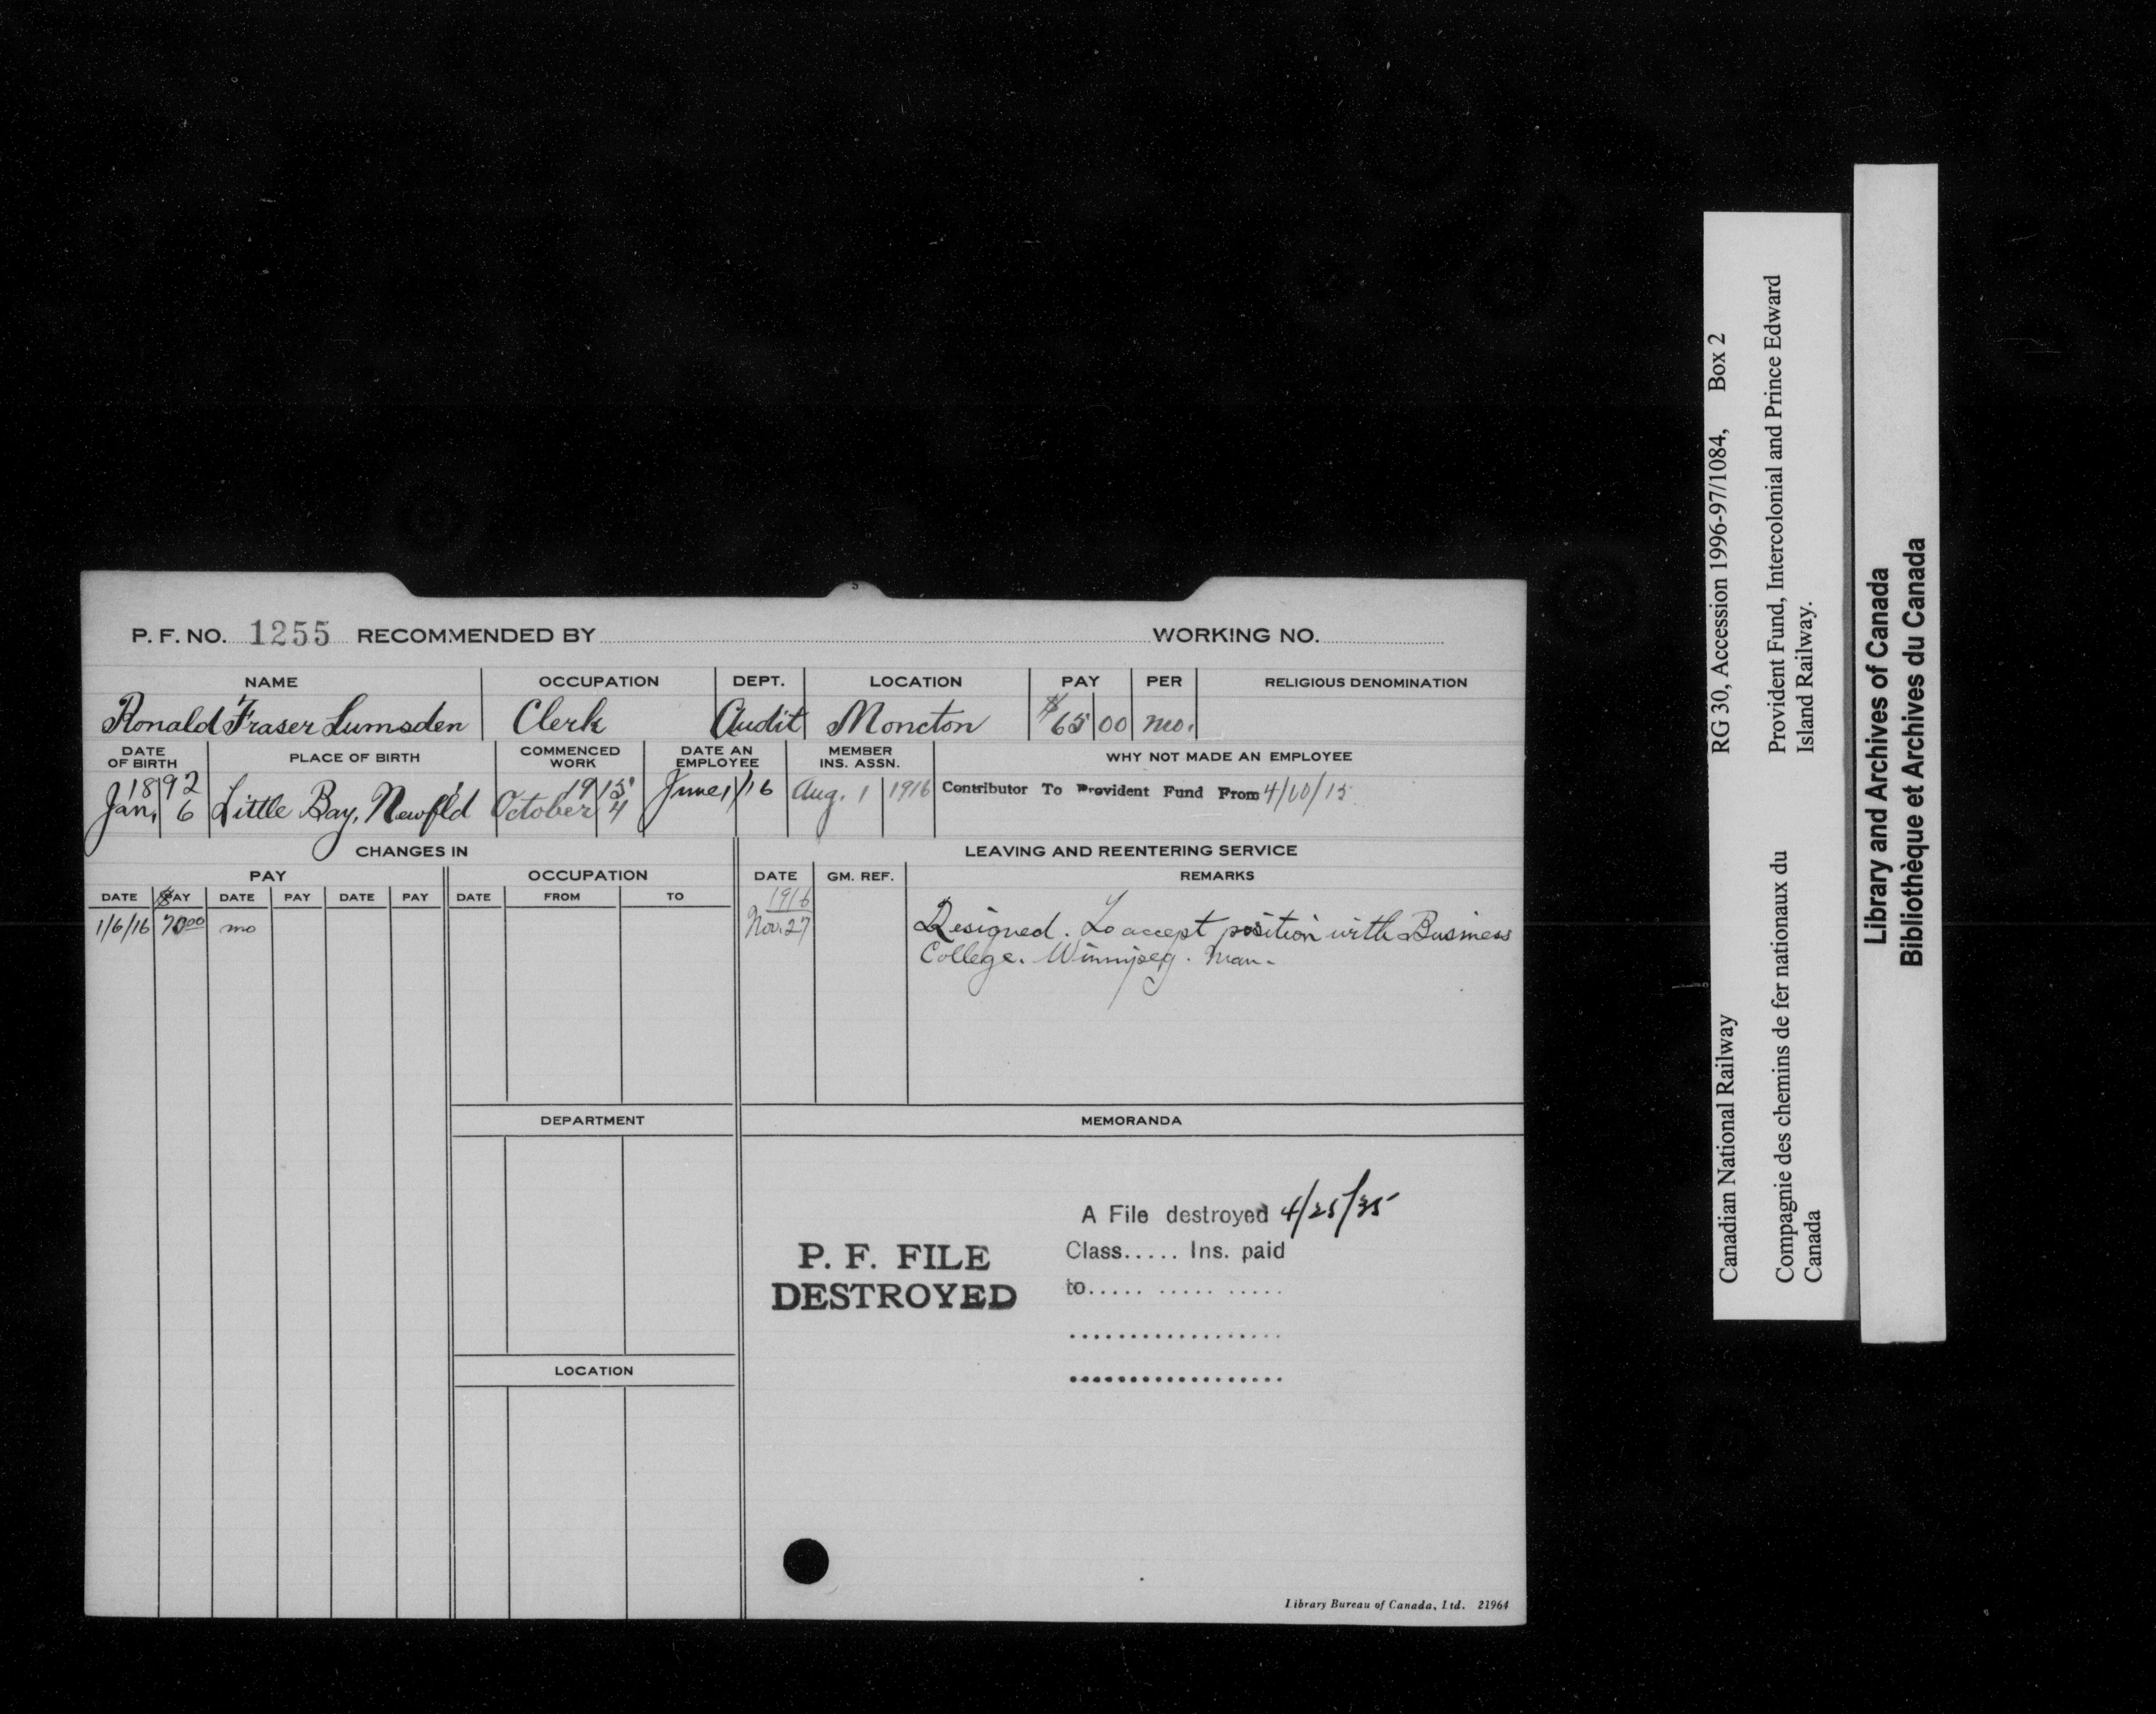 P. F. NO. 1255 RECOMMENDED BY WORKING NO.
NAME OCCUPATION DEPT. LOCATION PAY PER RELIGIOUS DENOMINATION
Ronald Fraser Lumsden Clerk Audit Moncton $65 00 mo.
DATE OF BIRTH PLACE OF BIRTH COMMENCED WORK DATE AN EMPLOYEE MEMBER INS. ASSN. WHY NOT MADE AN EMPLOYEE
1892 1915
Jan. 6 Little Bay, Newf'ld October 4 June 1/16 Aug. 1 1916 Contributor To Provident Fund From 4/10/15
CHANGES IN LEAVING AND REENTERING SERVICE
PAY OCCUPATION DATE GM. REF. REMARKS
DATE $PAY DATE PAY DATE PAY DATE FROM TO
1916
1/6/16 70 00 mo Nov. 27 Resigned. To accept position with Business
College. Winnipeg. Man.
DEPARTMENT MEMORANDA
A File destroyed 4/25/35
P. F. FILE
DESTROYED
Class..... Ins. paid
to..... ..... .....
...................
...................
LOCATION
Library Bureau of Canada, Ltd. 21964
Canadian National Railway RG 30, Accession 1996-97/1084, Box 2
Compagnie des chemins de fer nationaux du
Canada
Provident Fund, Intercolonial and Prince Edward
Island Railway.
Library and Archives of Canada
Bibliothèque et Archives du Canada